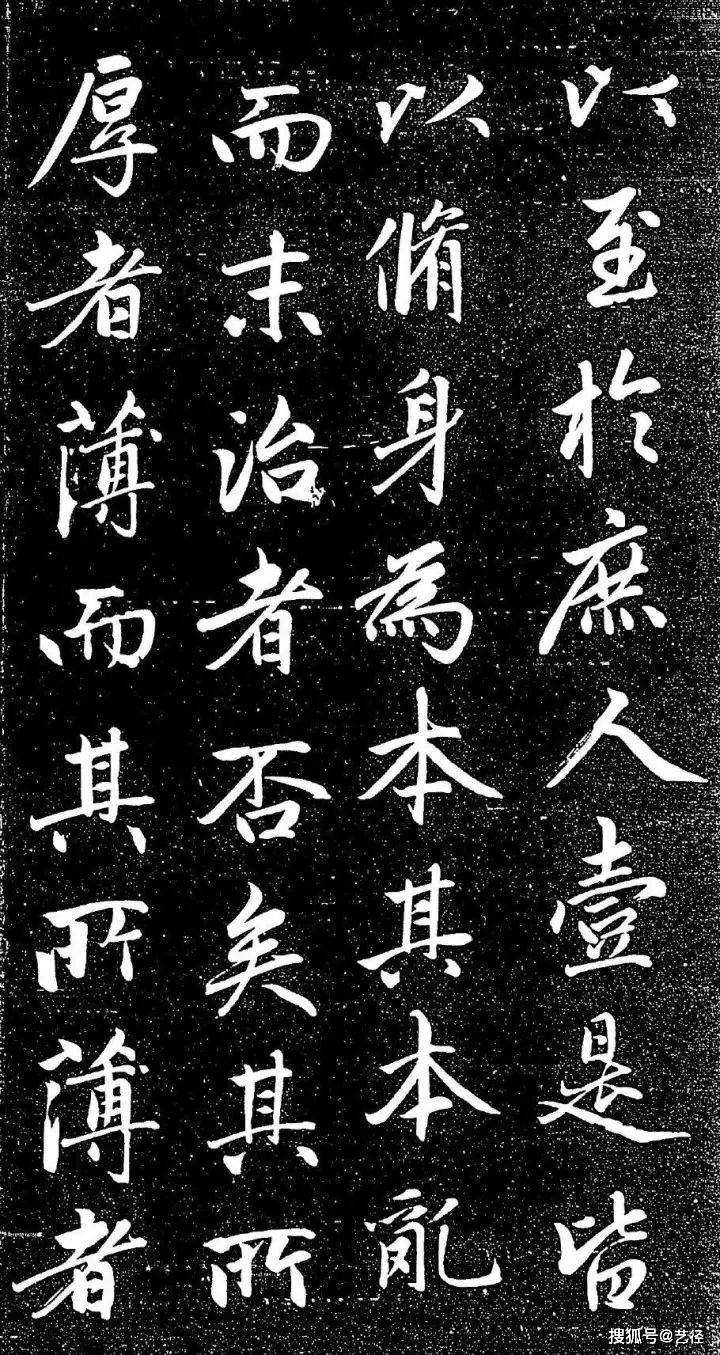 以至於庶人壹是皆
以脩身為本其本亂
而末治者否矣其所
厚者薄而其所薄者
搜狐号@艺径